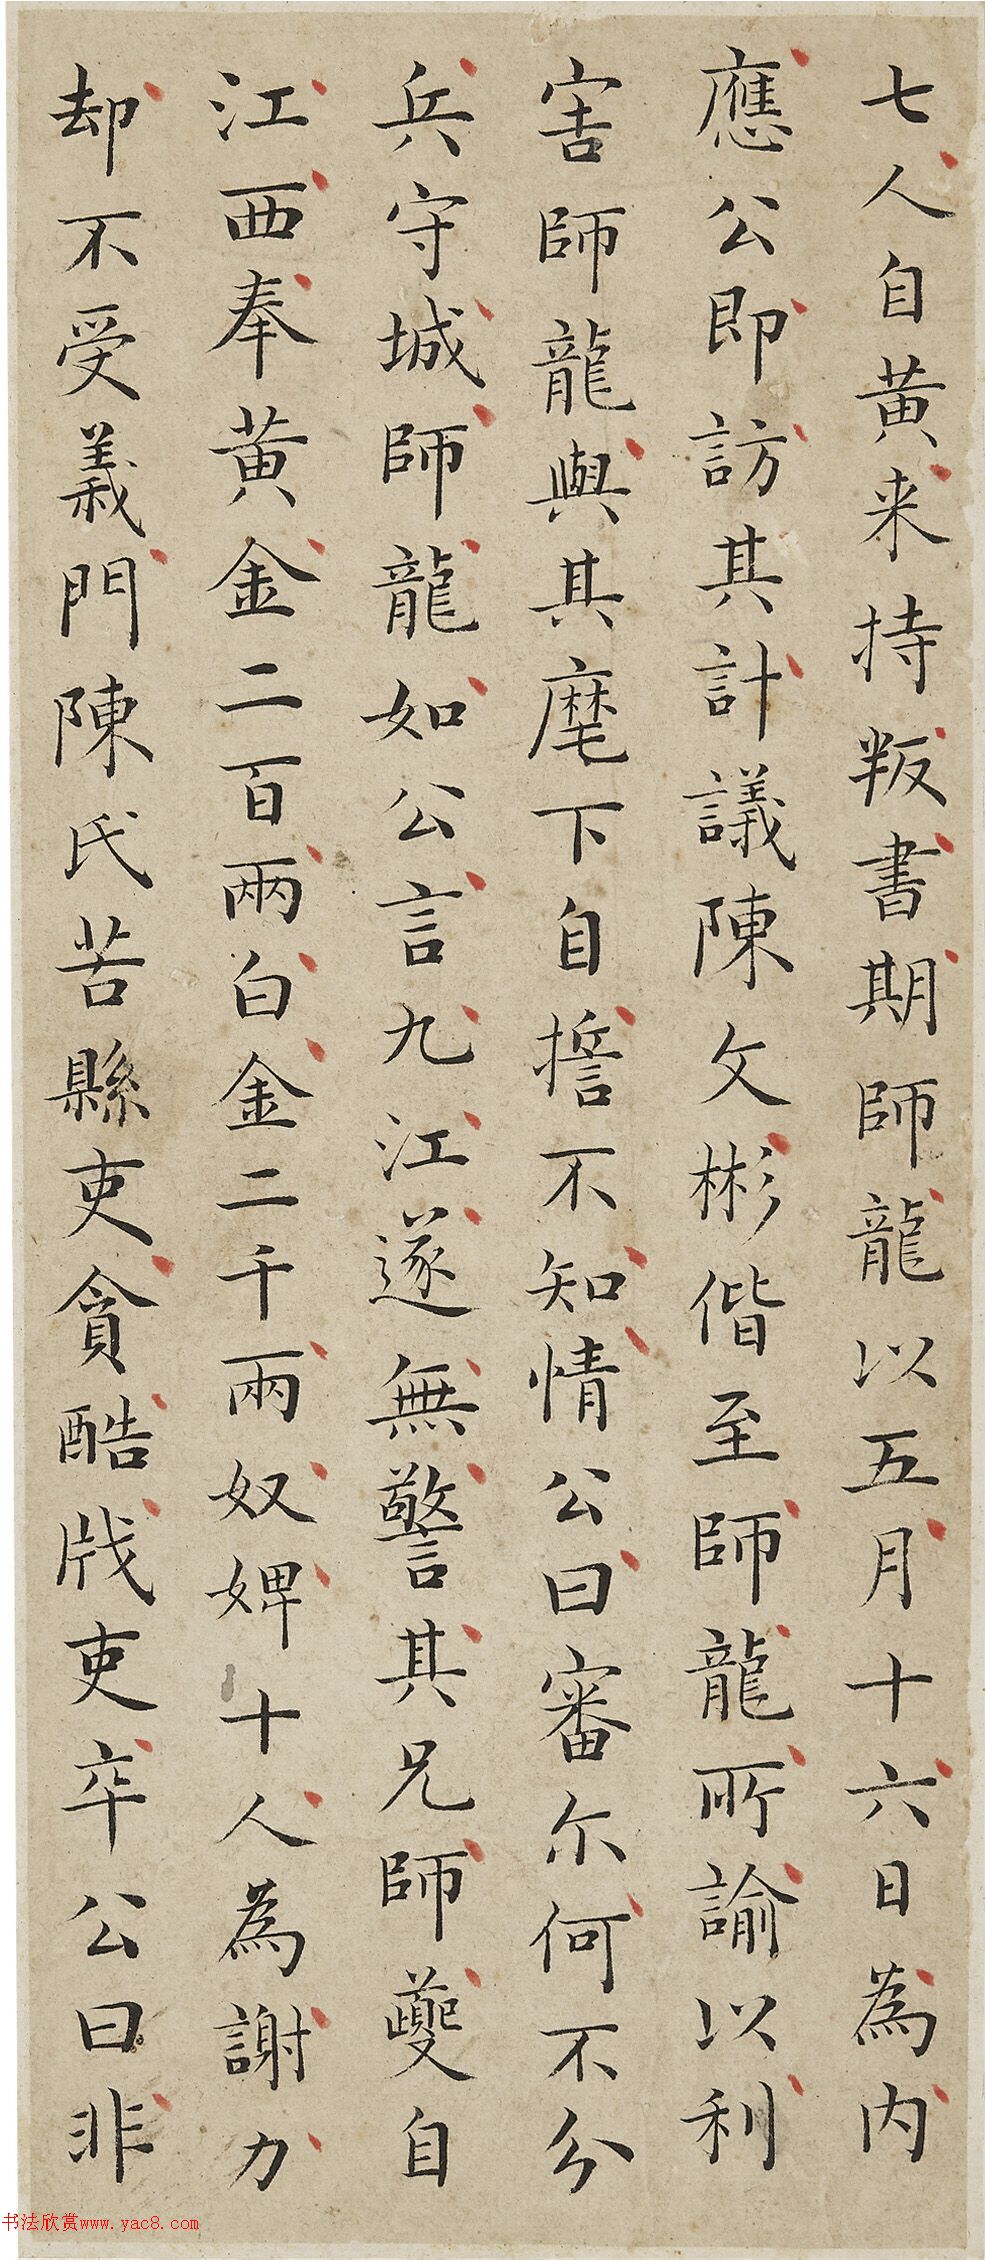 七人自黄来持叛書期師龍以五月十六日為内
應公即訪其計議陳文彬偕至師龍所諭以利
害師龍與其麾下自擔不知情公曰審尓何不分
兵守城師龍如公言九江遂無警其兄師夔自
江西奉黄金二百兩白金二千兩奴婢十人為謝力
却不受義門陳氏苦縣吏貪酷戕吏卒公曰非
书法欣赏www.yac8.com